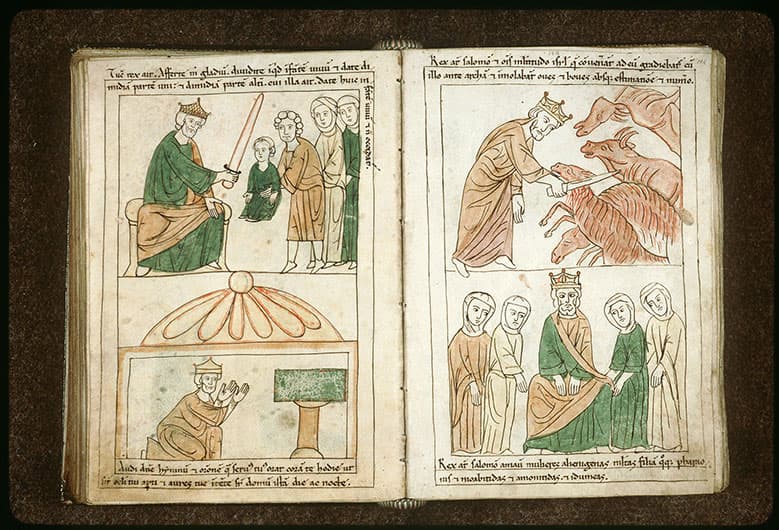 Tūc rex ait. Afferte m̄ gladiū. dividite iqͥd īfātē vivū ⁊ date di
midiā partē uni: ⁊ dimidiā partē altī. cui illa ait. date huic in
fātē vivū ⁊ n̄ occidat̄.
Audi dn̄e hȳmnū ⁊ oronē q̄ servꝰ tuꝰ orat corā te hodie ut
sīt oc̄li tui apti ⁊ aures tue sr̄ domū istā die ac nocte.
Rex aūt salomō ⁊ oīs mltitudo isrl̄ q̄ cōvenat̄ ad eū gradiebat̄ cū
illo ante archā ⁊ īmolabāt oves ⁊ boves absq; estimatiōe ⁊ num̄o.
Rex aūt salomō amavit mulieres alienigenas mltas filiā q̄q; phario
nis ⁊ moabitidas ⁊ amonitidas. ⁊ idumeas.